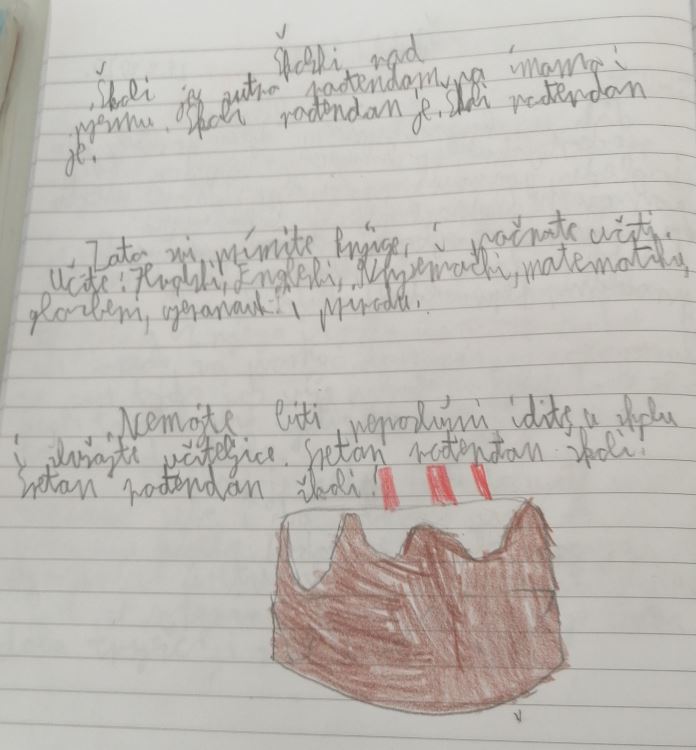 Školski rad
Školi je sutra rođendan, pa imamo
pjesmu. Školi rođendan je. Školi rođendan
je.
Zato vi primite knjige, i počnate učiti.
Učite: Hrvatski, Engleski, Njemački, matematiku,
glazbeni, vjeronauk i prirodu.
Nemojte biti neposlušni idite u školu
i slušajte učiteljice. Sretan rođendan školi!
Sretan rođendan školi!